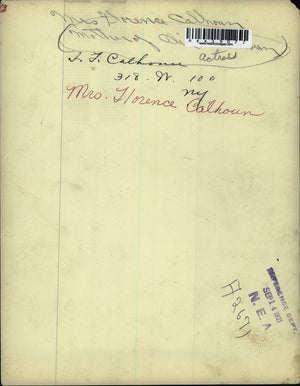 Mrs Florence Calhoun
(Mother of
Actress
F. F. Calhoun
318 - W. 100
ny
Mrs. Florence Calhoun
REFERENCE DEPT.
SEP 14 1921
N. E. A.